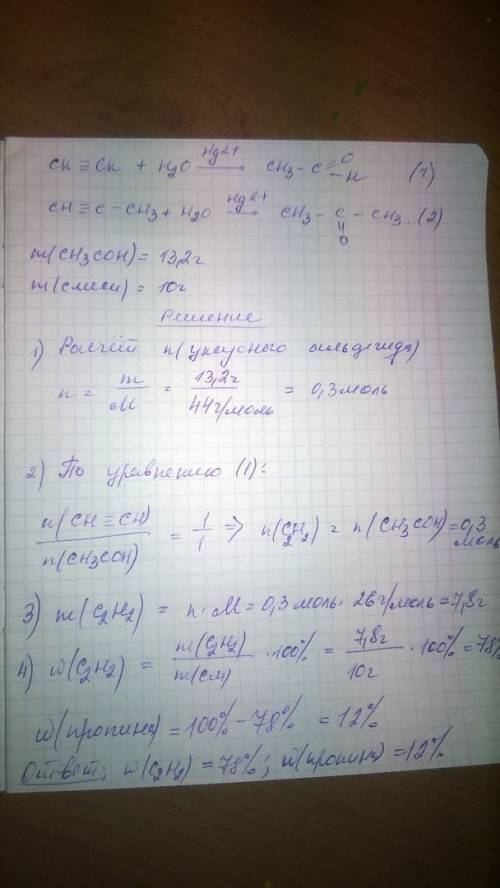 CH≡CH + H2O —Hg2+→ CH3-C=O-H (1)
CH≡C-CH3 + H2O —Hg2+→ CH3-C-CH3. (2)
‖
O
m(CH3COH) = 13,2г
m(смеси) = 10г
Решение
1) Расчёт n(уксусного альдегида)
n = m/M = 13,2г/44г/моль = 0,3моль
2) По уравнению (1):
n(CH≡CH)/n(CH3COH) = 1/1 => n(C2H2) = n(CH3COH) = 0,3 моль
3) m(C2H2) = n·M = 0,3моль·26г/моль = 7,8г
4) w(C2H2) = m(C2H2)/m(см) ·100% = 7,8г/10г ·100% = 78%
w(пропина) = 100% - 78% = 12%
Ответ: w(C2H2) = 78%; w(пропина) = 12%